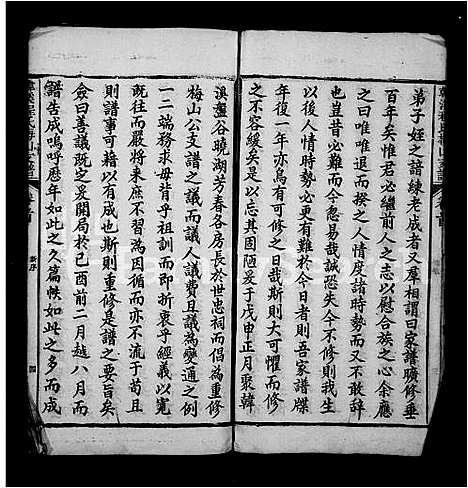 弟子姪之諳練老成者又羣相謂曰家譜曠修垂
百年矣惟君必繼前人之志以慰合族之心余應
之曰唯唯退而揆之人情度諸時勢而又不敢辭
也豈昔必難而今忽易哉誠恐失今不修則我生
以後人情時勢必更有難於今日者則吾家譜牒
一年一年亦烏有可修之日哉斯則大可懼而修
之不容緩矣是以忘其固陋爰于戊申正月聚韓
溪盤谷曉湖芳春各房長於世忠祠而倡為重修
梅山公支譜之議而議人議費且議為變通之例
一二端務求毋背乎祖訓而即折衷乎經義以寬
既往以肅將來亦不習為因循而亦不流于苟且
則譜事可藉以有成也斯則重修是譜之要旨矣
僉曰善議既定爰開局於己酉前二月越八月而
譜告成嗚呼歷年如此之久篇帙如此之多而成
新序
四